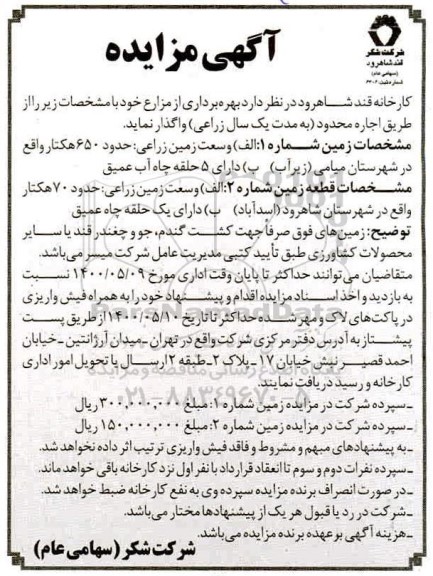 شرکت شکر
قند شاهرود
(سهامی عام)
آگهی مزایده
کارخانه قند شاهرود در نظر دارد بهره‌برداری از مزارع خود با مشخصات زیر را از
طریق اجاره محدود (به مدت یک سال زراعی) واگذار نماید.
مشخصات زمین شماره ۱: الف) وسعت زمین زراعی: حدود ۶۵۰ هکتار واقع
در شهرستان میامی (زیرآب) ب) دارای ۵ حلقه چاه آب عمیق
مشخصات قطعه زمین شماره ۲: الف) وسعت زمین زراعی: حدود ۷۰ هکتار
واقع در شهرستان شاهرود (اسدآباد) ب) دارای یک حلقه چاه عمیق
توضیح: زمین‌های فوق صرفاً جهت کشت گندم، جو و چغندر قند یا سایر
محصولات کشاورزی طبق تأیید کتبی مدیریت عامل شرکت میسر می‌باشد.
متقاضیان می‌توانند حداکثر تا پایان وقت اداری مورخ ۱۴۰۰/۰۵/۰۹ نسبت
به بازدید و اخذ اسناد مزایده اقدام و پیشنهاد خود را به همراه فیش واریزی
در پاکت‌های لاک و مهر شده حداکثر تا تاریخ ۱۴۰۰/۰۵/۱۰ از طریق پست
پیشتاز به آدرس دفتر مرکزی شرکت واقع در تهران ـ میدان آرژانتین ـ خیابان
احمد قصیر ـ نبش خیابان ۱۷ ـ پلاک ۲ ـ طبقه ۲ ارسال یا تحویل امور اداری
کارخانه و رسید دریافت نمایند.
۰۲۱-۸۸۳۴۹۶۷۰-۵
ـ سپرده شرکت در مزایده زمین شماره ۱: مبلغ ۳۰۰,۰۰۰,۰۰۰ ریال
ـ سپرده شرکت در مزایده زمین شماره ۲: مبلغ ۱۵۰,۰۰۰,۰۰۰ ریال
ـ به پیشنهادهای مبهم و مشروط و فاقد فیش واریزی ترتیب اثر داده نخواهد شد.
ـ سپرده نفرات دوم و سوم تا انعقاد قرارداد با نفر اول نزد کارخانه باقی خواهد ماند.
ـ در صورت انصراف برنده مزایده سپرده وی به نفع کارخانه ضبط خواهد شد.
ـ شرکت در رد یا قبول هر یک از پیشنهادها مختار می‌باشد.
ـ هزینه آگهی بر عهده برنده مزایده می‌باشد.
شرکت شکر (سهامی عام)